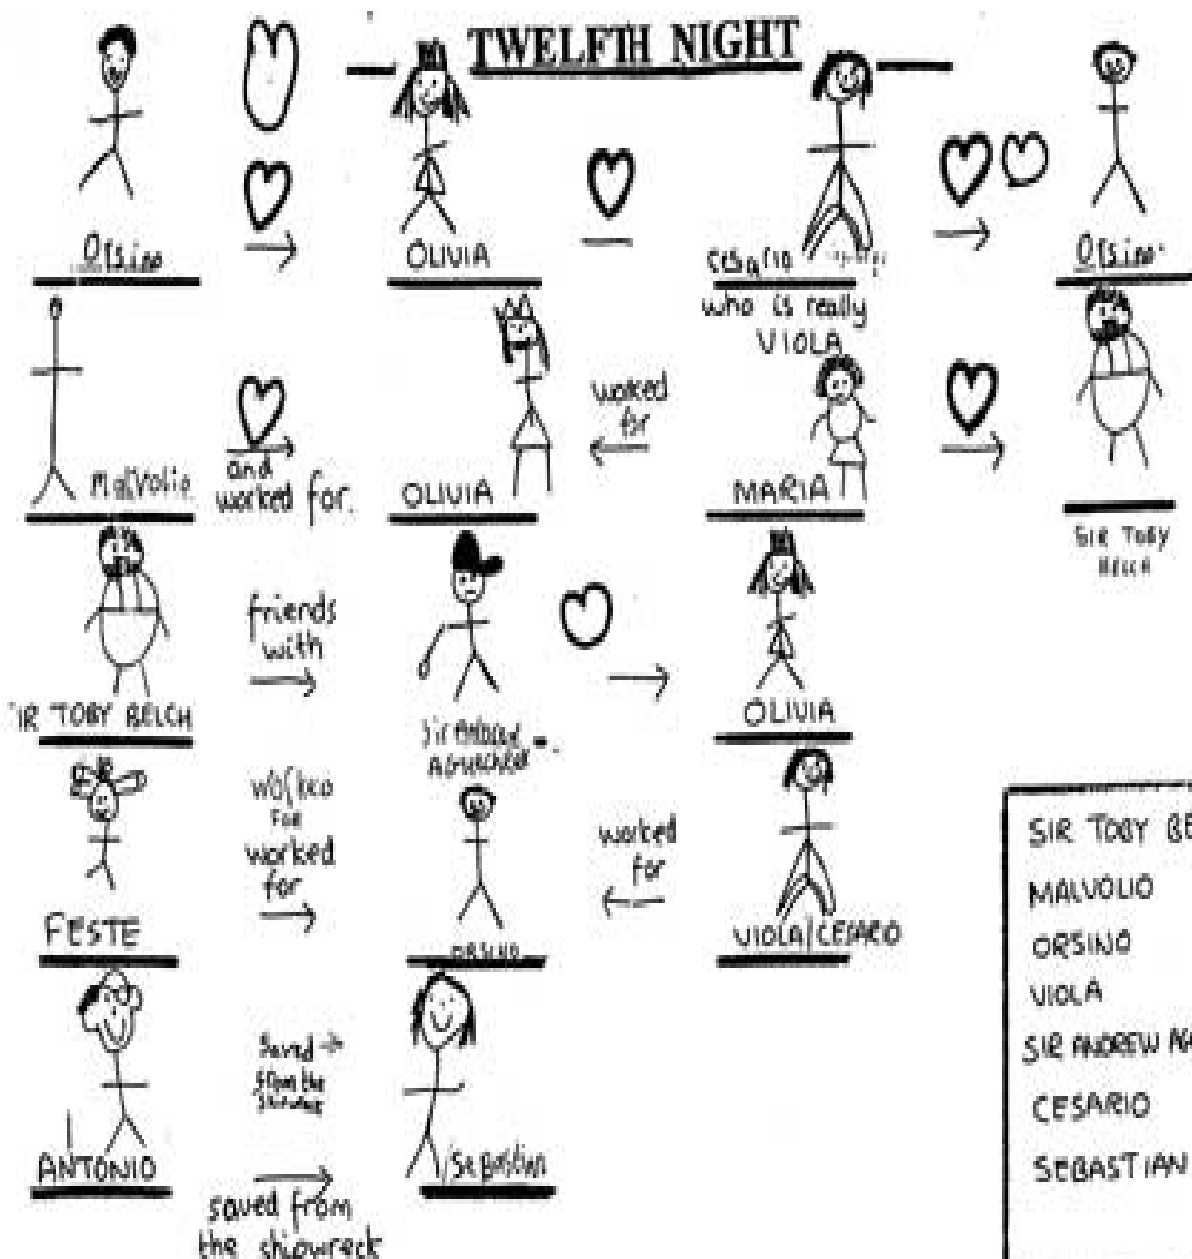 TWELFTH NIGHT
Orsino
OLIVIA
Cesario
who is really
VIOLA
Orsino
Malvolio
and
worked for.
OLIVIA
worked
for
MARIA
SIR TOBY
BELCH
IR TOBY BELCH
friends
with
Sir
OLIVIA
FESTE
for
worked
for
ORSINO
worked
for
VIOLA/CESARO
ANTONIO
Saved
from the
saved from
the shipwreck
Sebastian
SIR TOBY BE
MALVOLIO
ORSINO
VIOLA
SIR ANDREW AG
CESARIO
SEBASTIAN